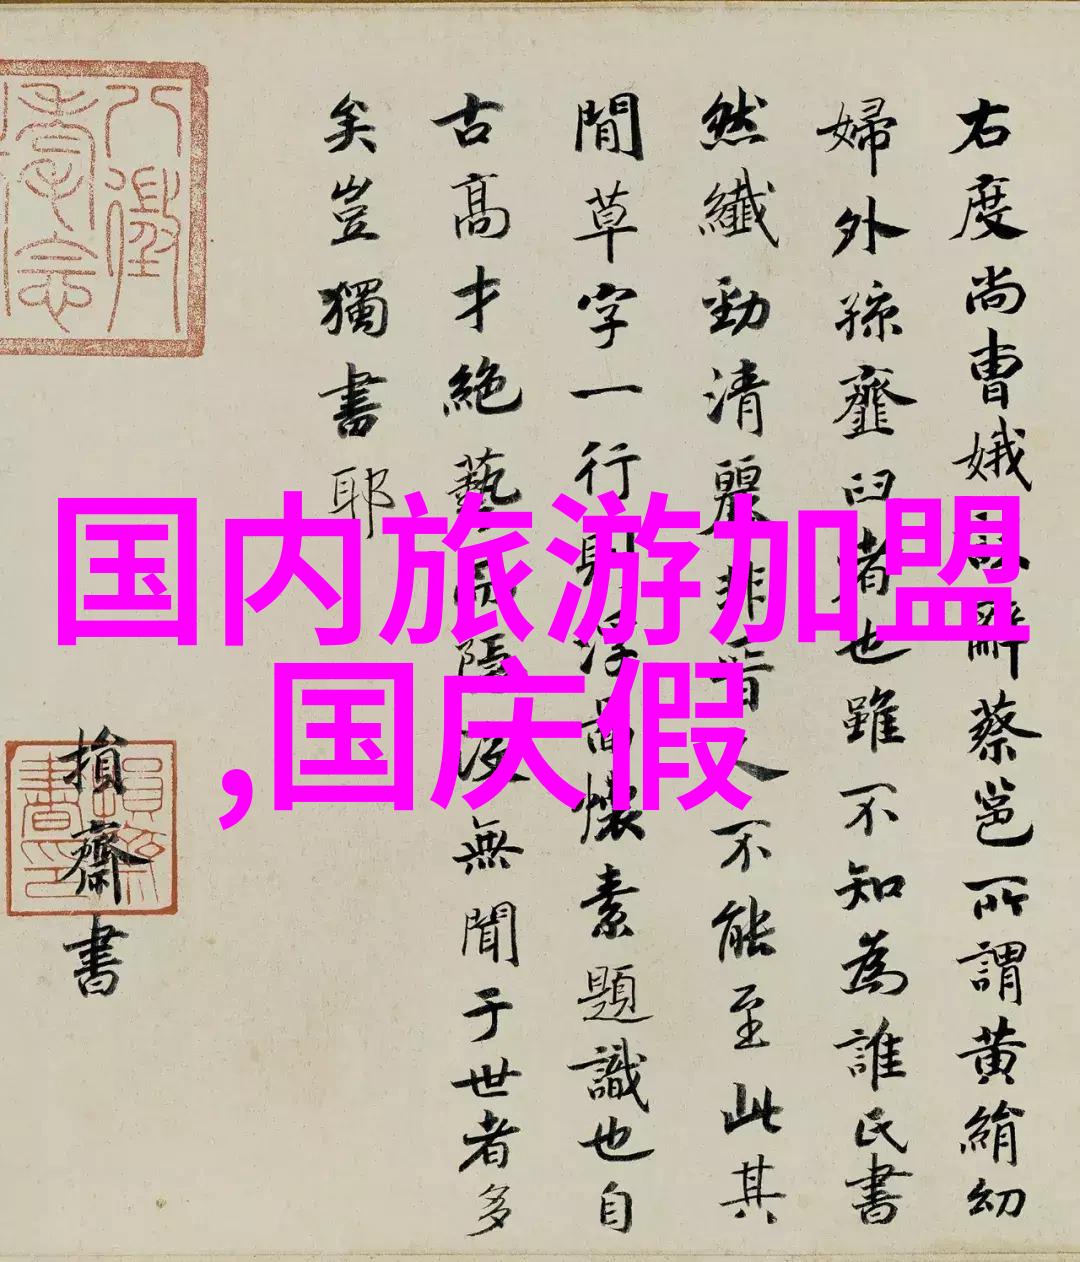 国内旅游加盟
,国庆假
右度尚曹娥辭蔡邕所謂黃絹幼
婦外孫虀臼者也雖不知為誰氏書
然纖勁清麗非晉人不能至此其
閒草字一行則浮啚懷素題識也自
古高才絕藝隱沒無聞于世者多
矣豈獨書耶
損齋書